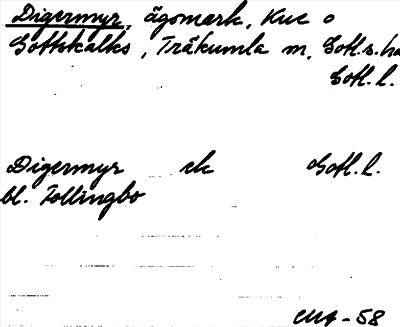 Digermyr, ägomark, Kuse o
Gottskalks, Träkumla sn, Gotl. s. hd
Gotl. l.
Digermyr ek Gotl. l.
bl. Follingbo
-58